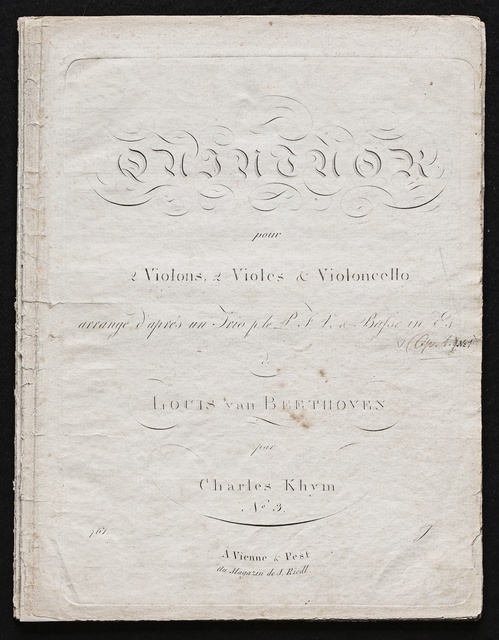 QUINTUOR
pour
2 Violons, 2 Violes & Violoncello
arrangé d'après un Trio p. le P. F. V. & Basse in Es
(Op. 1. No 1
de
LOUIS van BEETHOVEN
par
Charles Khym
No 3.
761
A Vienne & Pest
Au Magazin de J. Riedl.